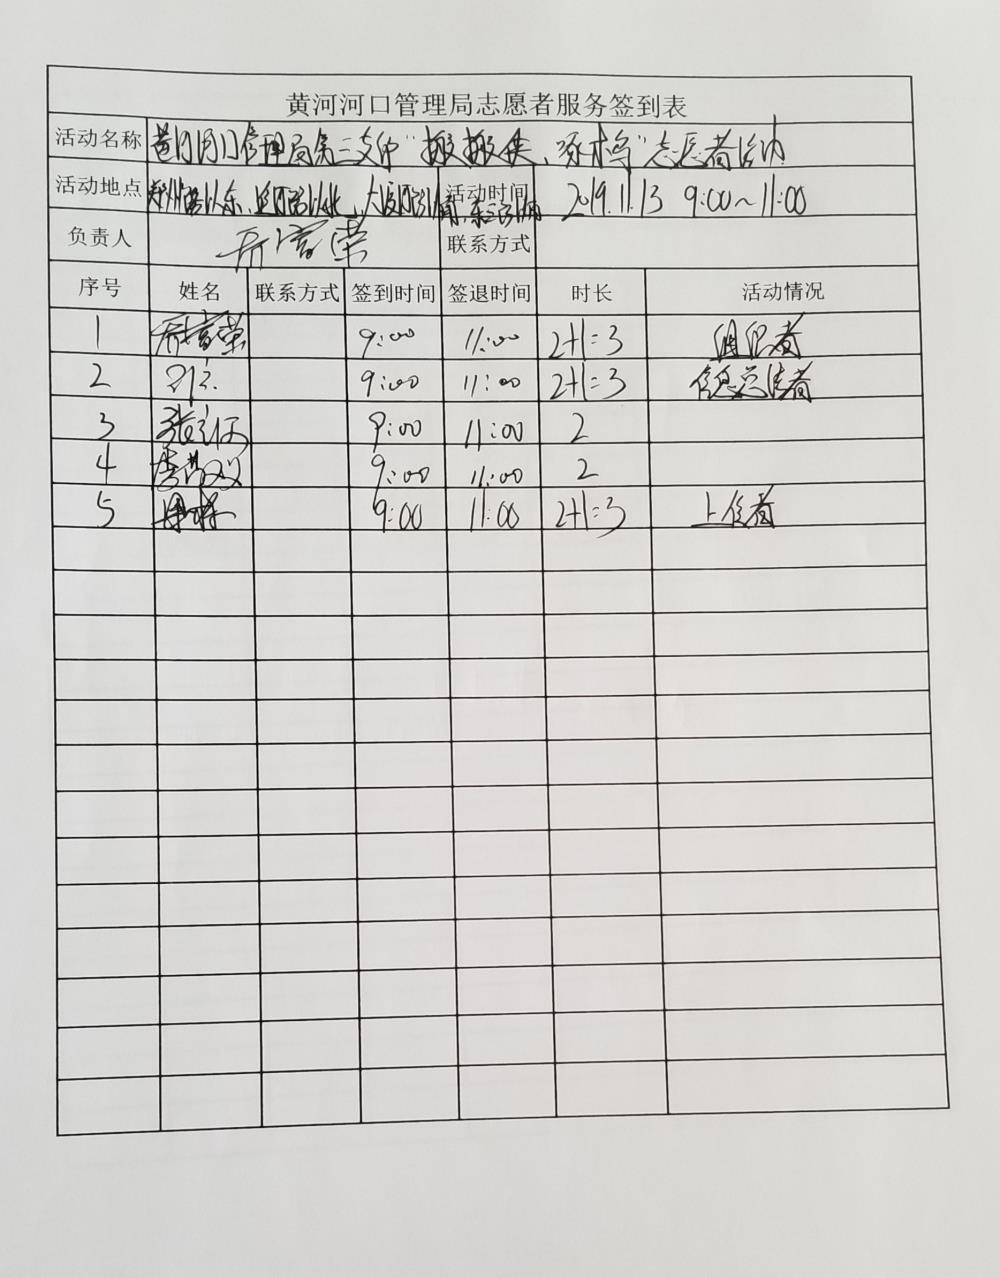 黄河河口管理局志愿者服务签到表
活动名称 黄河河口管理局第三支部“搬搬侠、啄木鸟”志愿者活动
活动地点 郑州路以东、以北、 活动时间 2019.11.13 9:00~11:00
负责人 乔富荣 联系方式
序号 姓名 联系方式 签到时间 签退时间 时长 活动情况
1 乔富荣 9:00 11:00 2+1=3 组织者
2 9:00 11:00 2+1=3 信息总结者
3 9:00 11:00 2
4 9:00 11:00 2
5 9:00 11:00 2+1=3 上传者